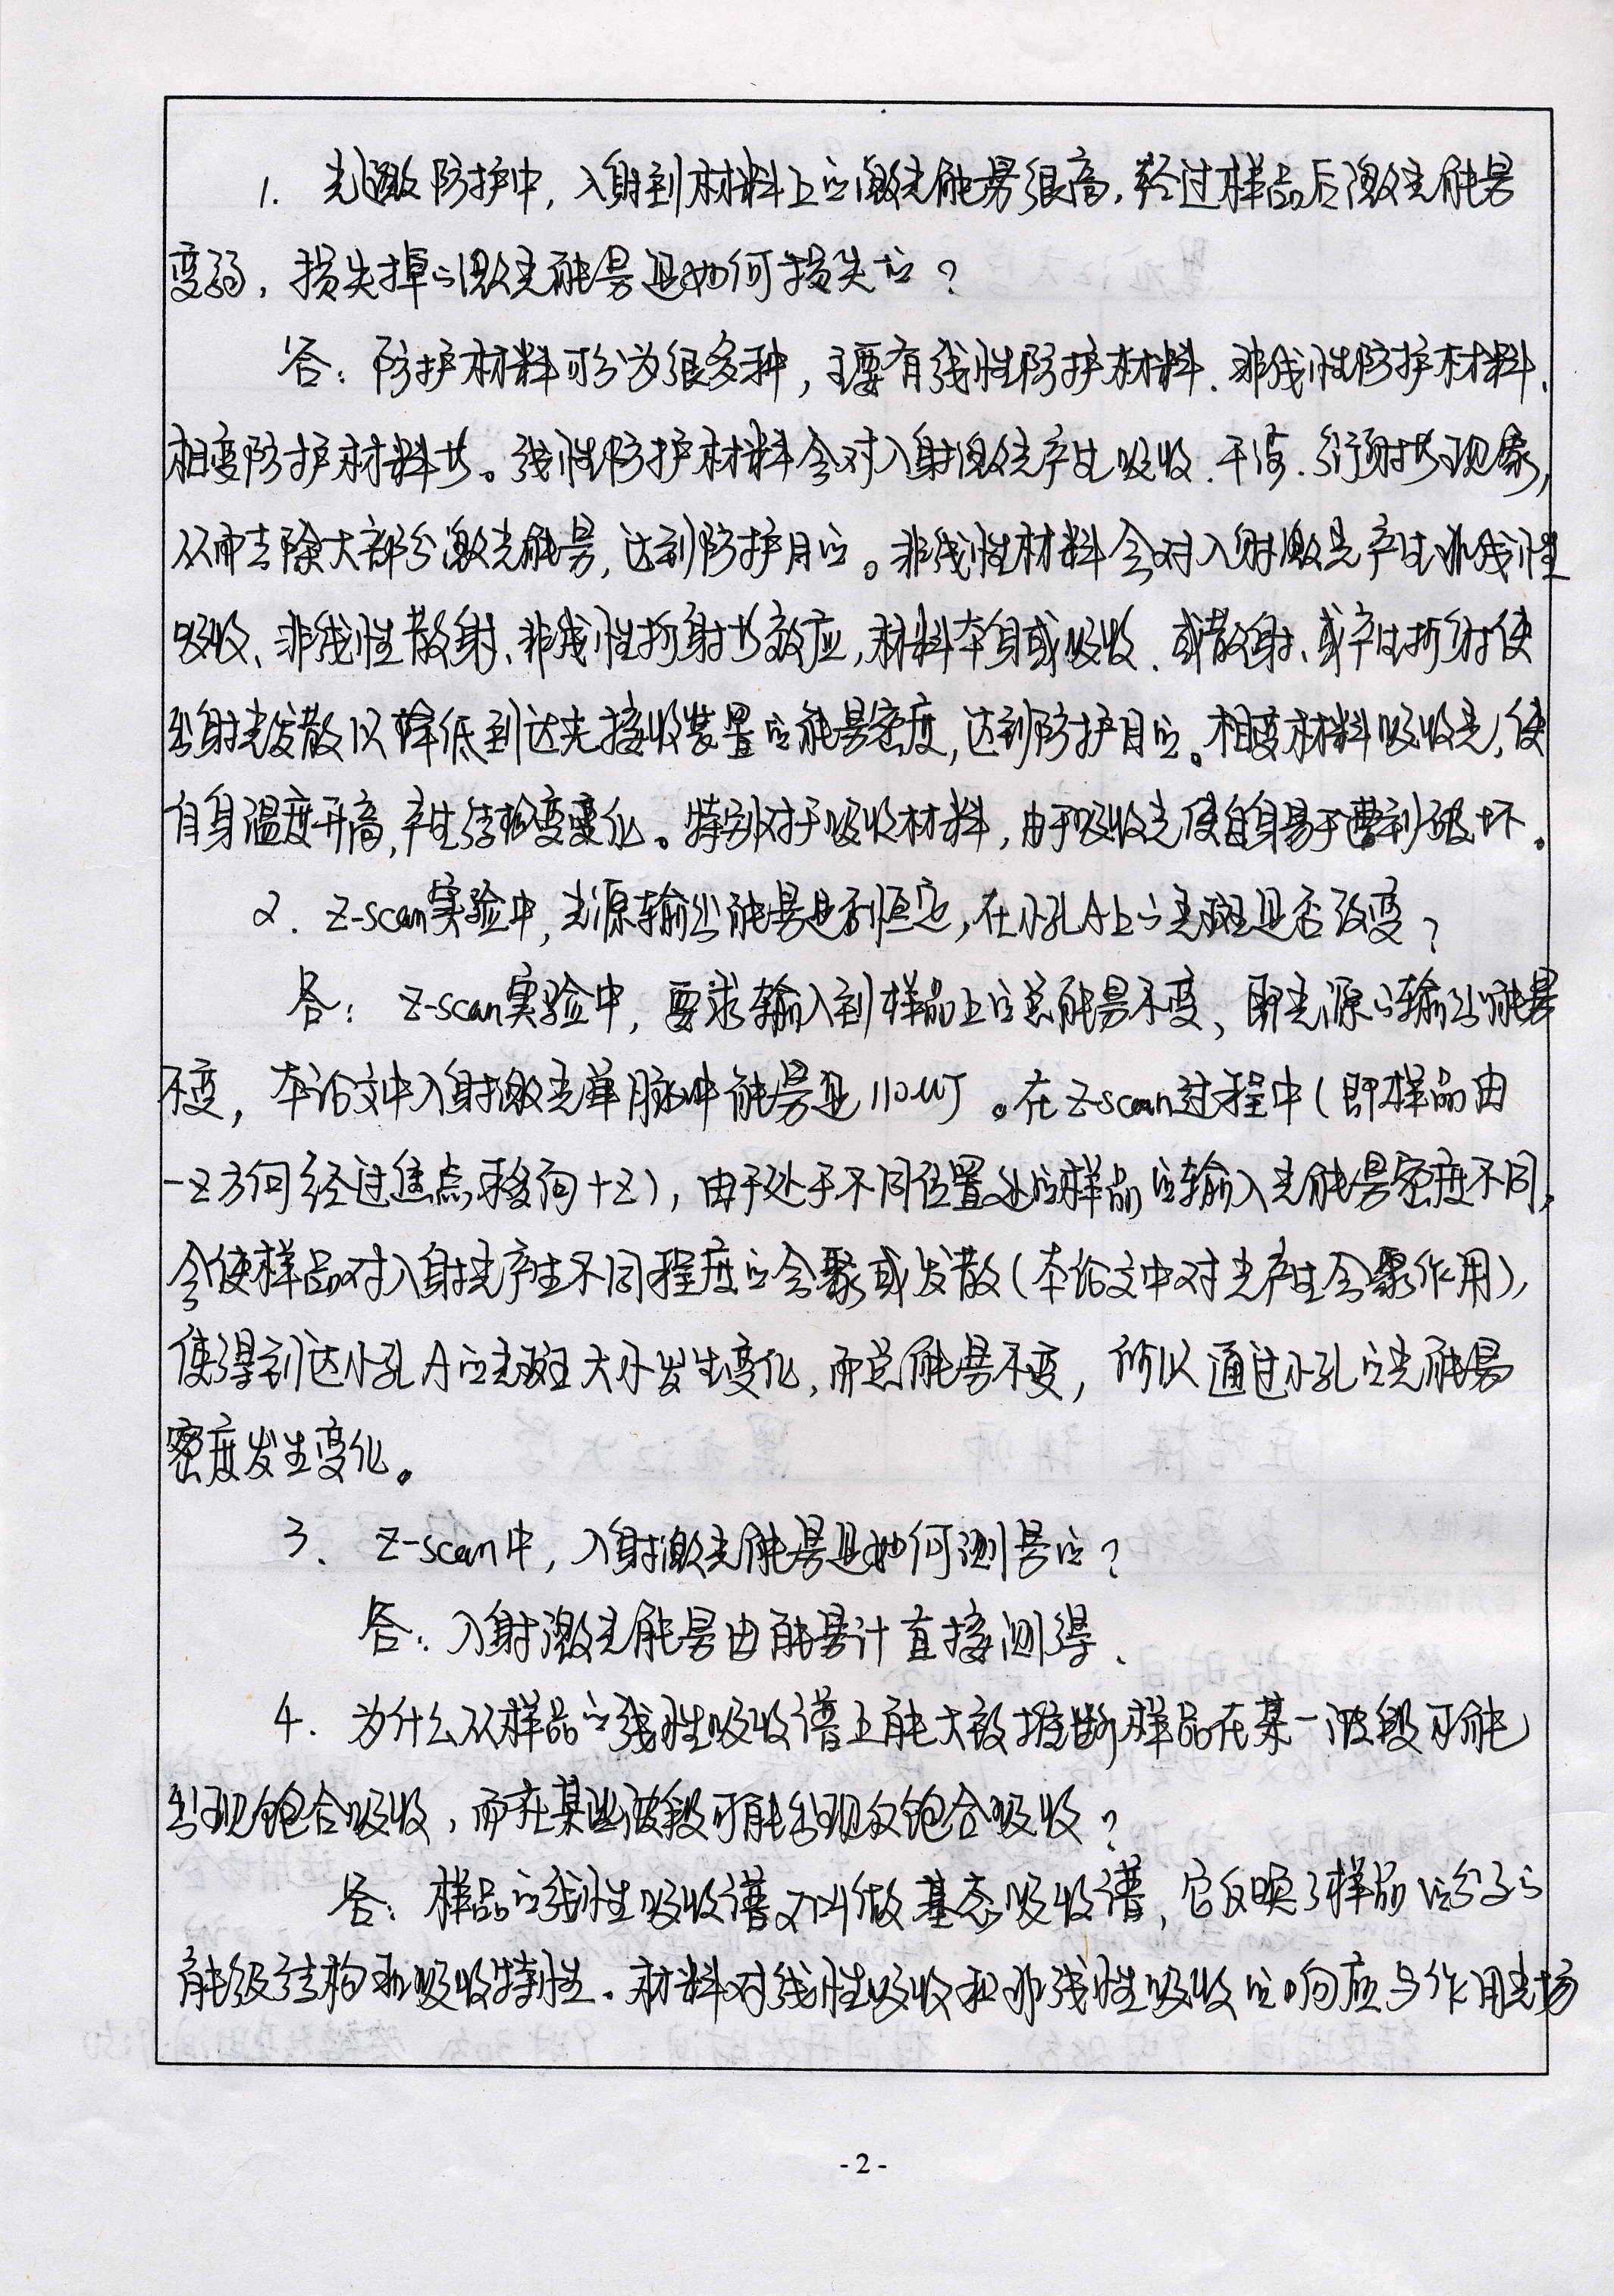 1. 光激防护中，入射到材料上的激光能量很高，经过样品后激光能量
变弱，损失掉的激光能量是如何损失的？
答：防护材料可分为很多种，主要有线性防护材料、非线性防护材料、
相变防护材料等。线性防护材料会对入射激光产生吸收、干涉、衍射等现象，
从而去除大部分激光能量，达到防护目的。非线性材料会对入射激光产生非线性
吸收、非线性散射、非线性折射等效应，材料本身或吸收、或散射、或产生折射使
出射光发散以降低到达光接收装置的能量密度，达到防护目的。相变材料吸收光，使
自身温度升高，产生结构变化。特别对于吸收材料，由于吸收光使自身易于遭到破坏。
2. Z-scan实验中，光源输出能量是否恒定，在小孔A上的光斑是否改变？
答：Z-scan实验中，要求输入到样品上的总能量不变，即光源的输出能量
不变，本论文中入射激光单脉冲能量是110μJ。在Z-scan过程中（即样品由
-Z方向经过焦点移向+Z），由于处于不同位置处的样品的输入光能量密度不同，
会使样品对入射光产生不同程度的会聚或发散（本论文中对光产生会聚作用），
使得到达小孔A的光斑大小发生变化，而总能量不变，所以通过小孔的光能量
密度发生变化。
3. Z-scan中，入射激光能量是如何测量的？
答：入射激光能量由能量计直接测得。
4. 为什么从样品的线性吸收谱上能大致推断样品在某一波段可能
出现饱合吸收，而在某些波段可能出现反饱合吸收？
答：样品的线性吸收谱又叫做基态吸收谱，它反映了样品的分子的
能级结构和吸收特性。材料对线性吸收和非线性吸收的响应与作用光场
- 2 -